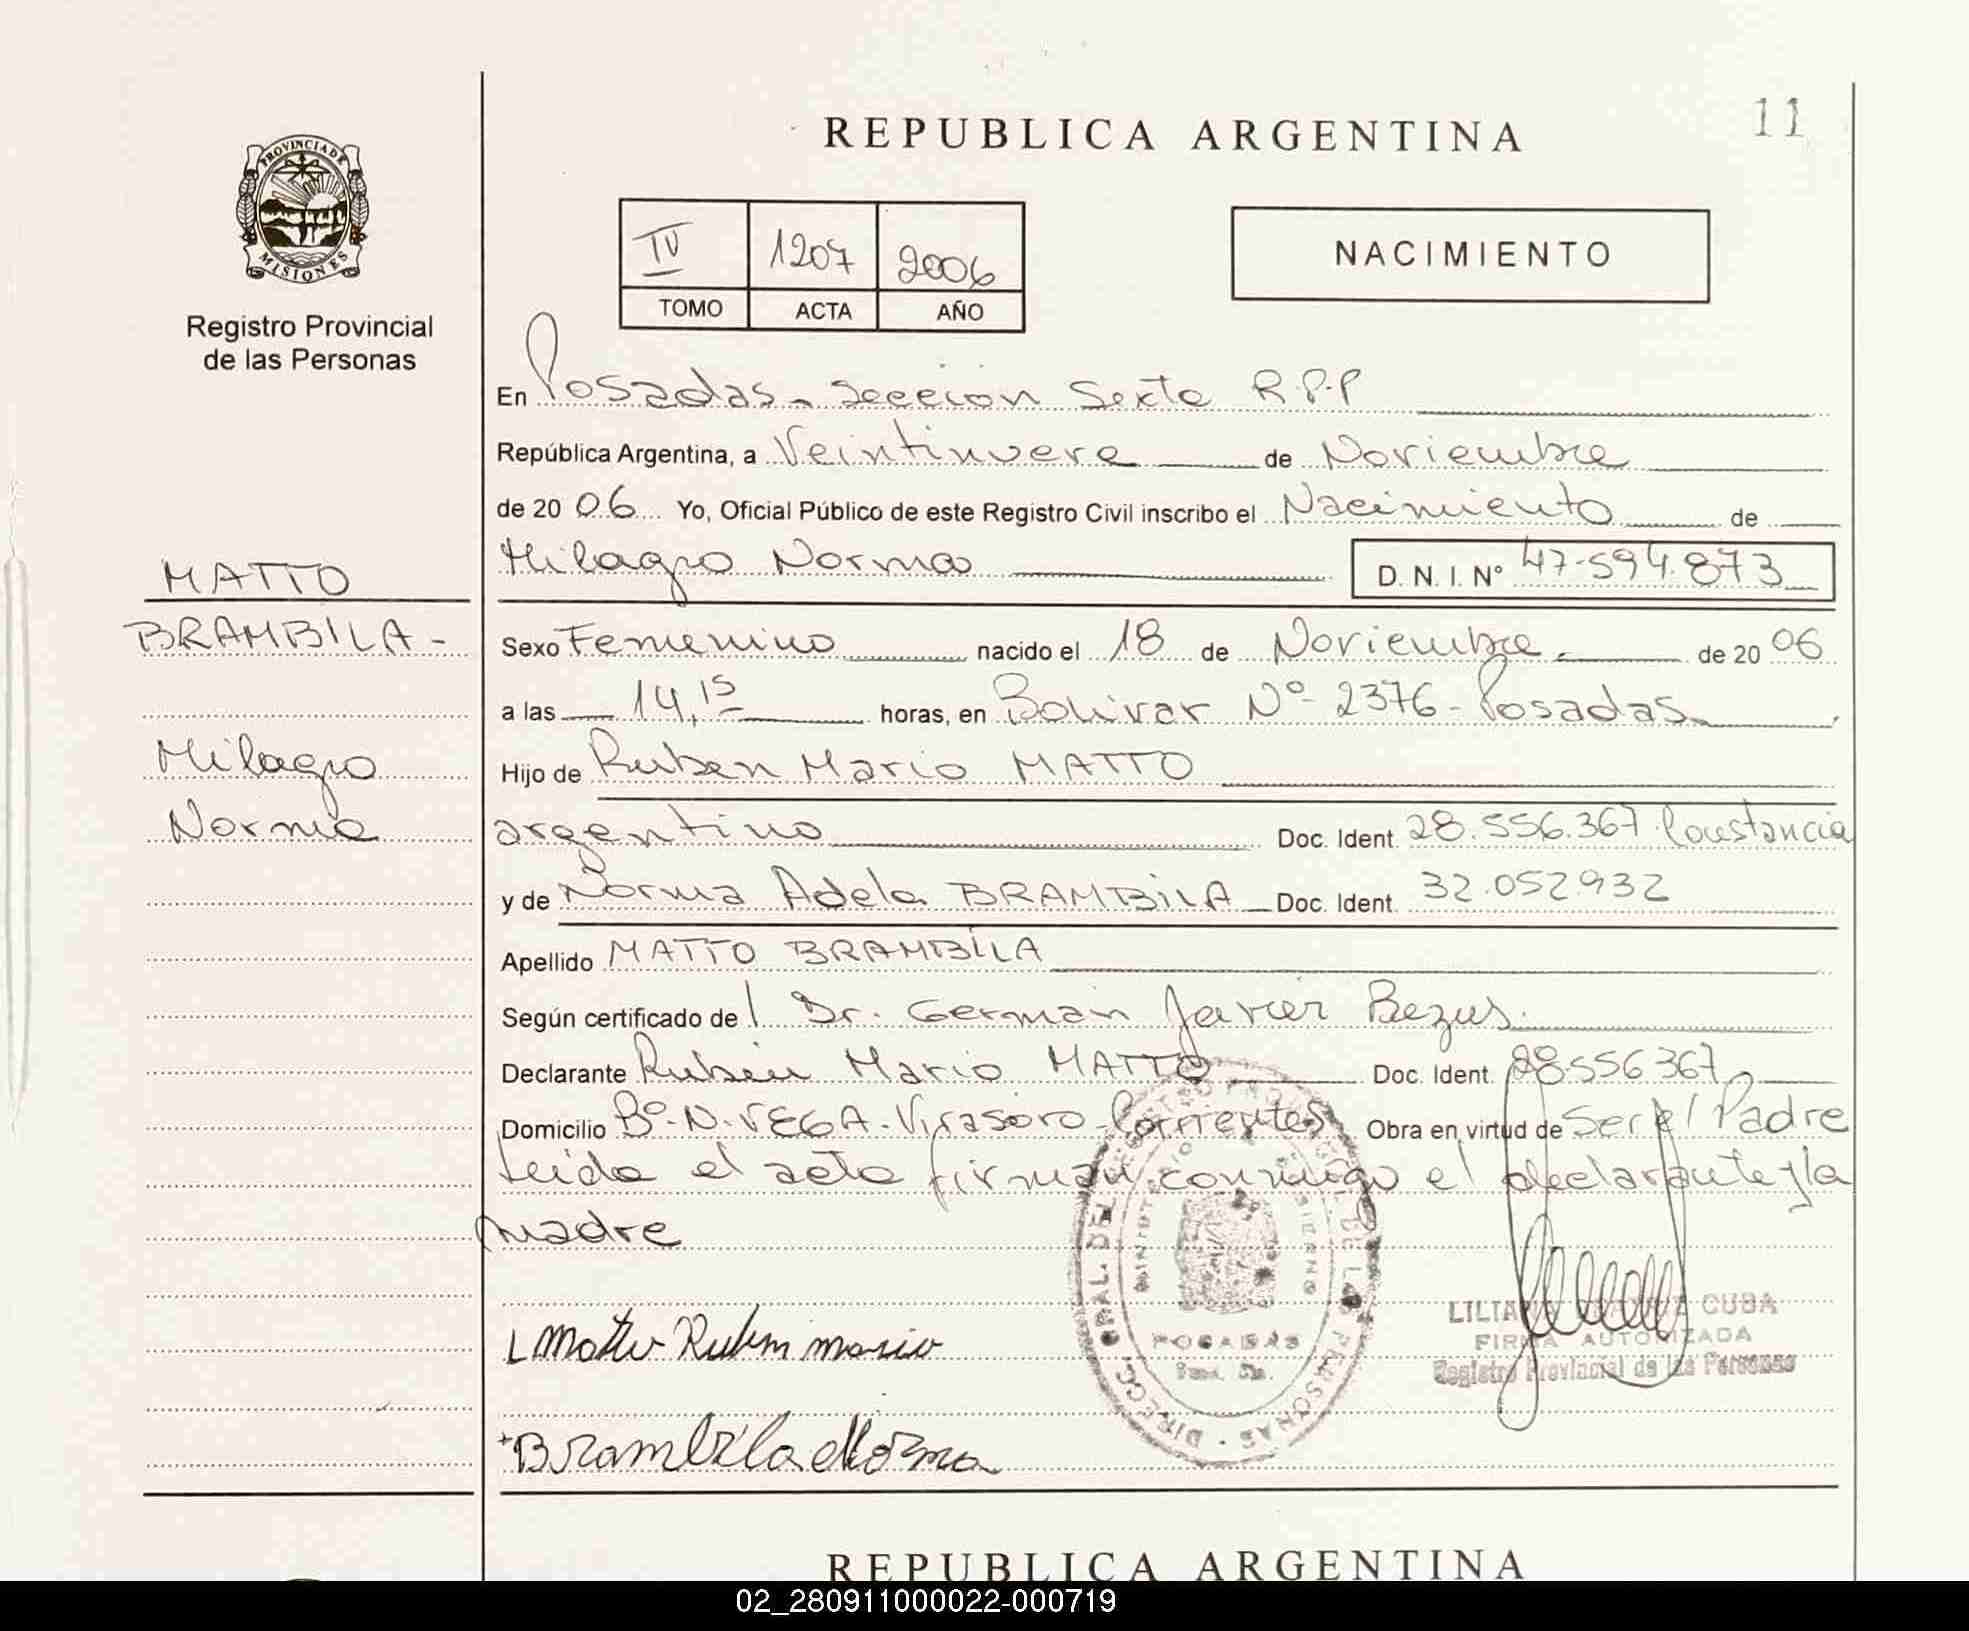 REPUBLICA ARGENTINA
11
PROVINCIA DE
MISIONES
Registro Provincial
de las Personas
IV 1207 2006
TOMO ACTA AÑO
NACIMIENTO
En Posadas - Sección Sexta R.P.P
República Argentina, a Veintinueve de Noviembre
de 20 06 Yo, Oficial Público de este Registro Civil inscribo el Nacimiento de
Milagro Norma D. N. I. Nº 47.594.873
MATTO
BRAMBILA -
Milagro
Norma
Sexo Femenino nacido el 18 de Noviembre de 20 06
a las 14,15 horas, en Bolivar Nº 2376 - Posadas
Hijo de Ruben Mario MATTO
argentino Doc. Ident. 28.556.367 Constancia
y de Norma Adela BRAMBILA Doc. Ident. 32.052.932
Apellido MATTO BRAMBILA
Según certificado de l Dr. German Javier Bezus.
Declarante Rubén Mario MATTO Doc. Ident. 28.556.367
Domicilio Bº. N. VEGA. Virasoro - Corrientes Obra en virtud de Ser el Padre
Leida el acta firman conmigo el declarante y la
madre
Matto Ruben mario
Brambila Norma
POSADAS
CUBA
FIRMA AUTORIZADA
Registro Provincial de las Personas
REPUBLICA ARGENTINA
02_280911000022-000719